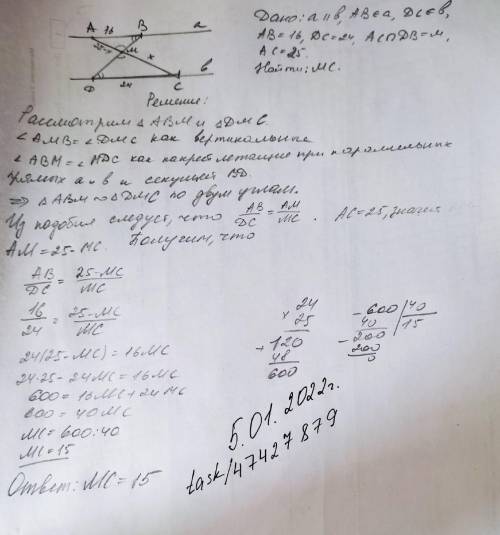 A 16 B a
25-x M x
D 24 C в
Дано: a∥в, AB∈a, DC∈в,
AB=16, DC=24, AC∩DB=M,
AC=25.
Найти: MC.
Решение:
Рассмотрим △ABM и △DMC
∠AMB=∠DMC как вертикальные
∠ABM=∠MDC как накрест лежащие при параллельных
прямых a и в и секущей BD.
⇒ △ABM ∾ △DMC по двум углам.
Из подобия следует, что AB/DC = AM/MC. AC=25, значит
AM=25-MC. Получим, что
AB/DC = 25-MC/MC
16/24 = 25-MC/MC
24(25-MC)=16MC
24·25-24MC=16MC
600=16MC+24MC
600=40MC
MC=600:40
MC=15
Ответ: MC=15
× 24
25
+ 120
48
600
- 600 | 40
40 15
- 200
200
0
5.01.2022г.
task/47427879